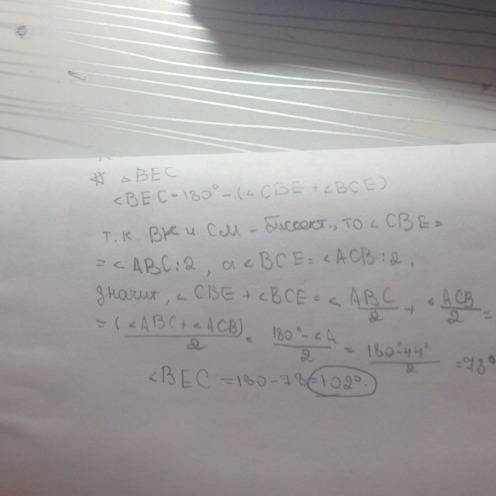 △BEC
∠BEC=180°-(∠CBE+∠BCE)
т.к BK и CM - биссект., то ∠CBE=
=∠ABC:2, а ∠BCE=∠ACB:2,
значит, ∠CBE+∠BCE=∠ABC/2+∠ACB/2=
=(∠ABC+∠ACB)/2=180°-∠A/2=180°-44°/2=78°
∠BEC=180-78=102°.